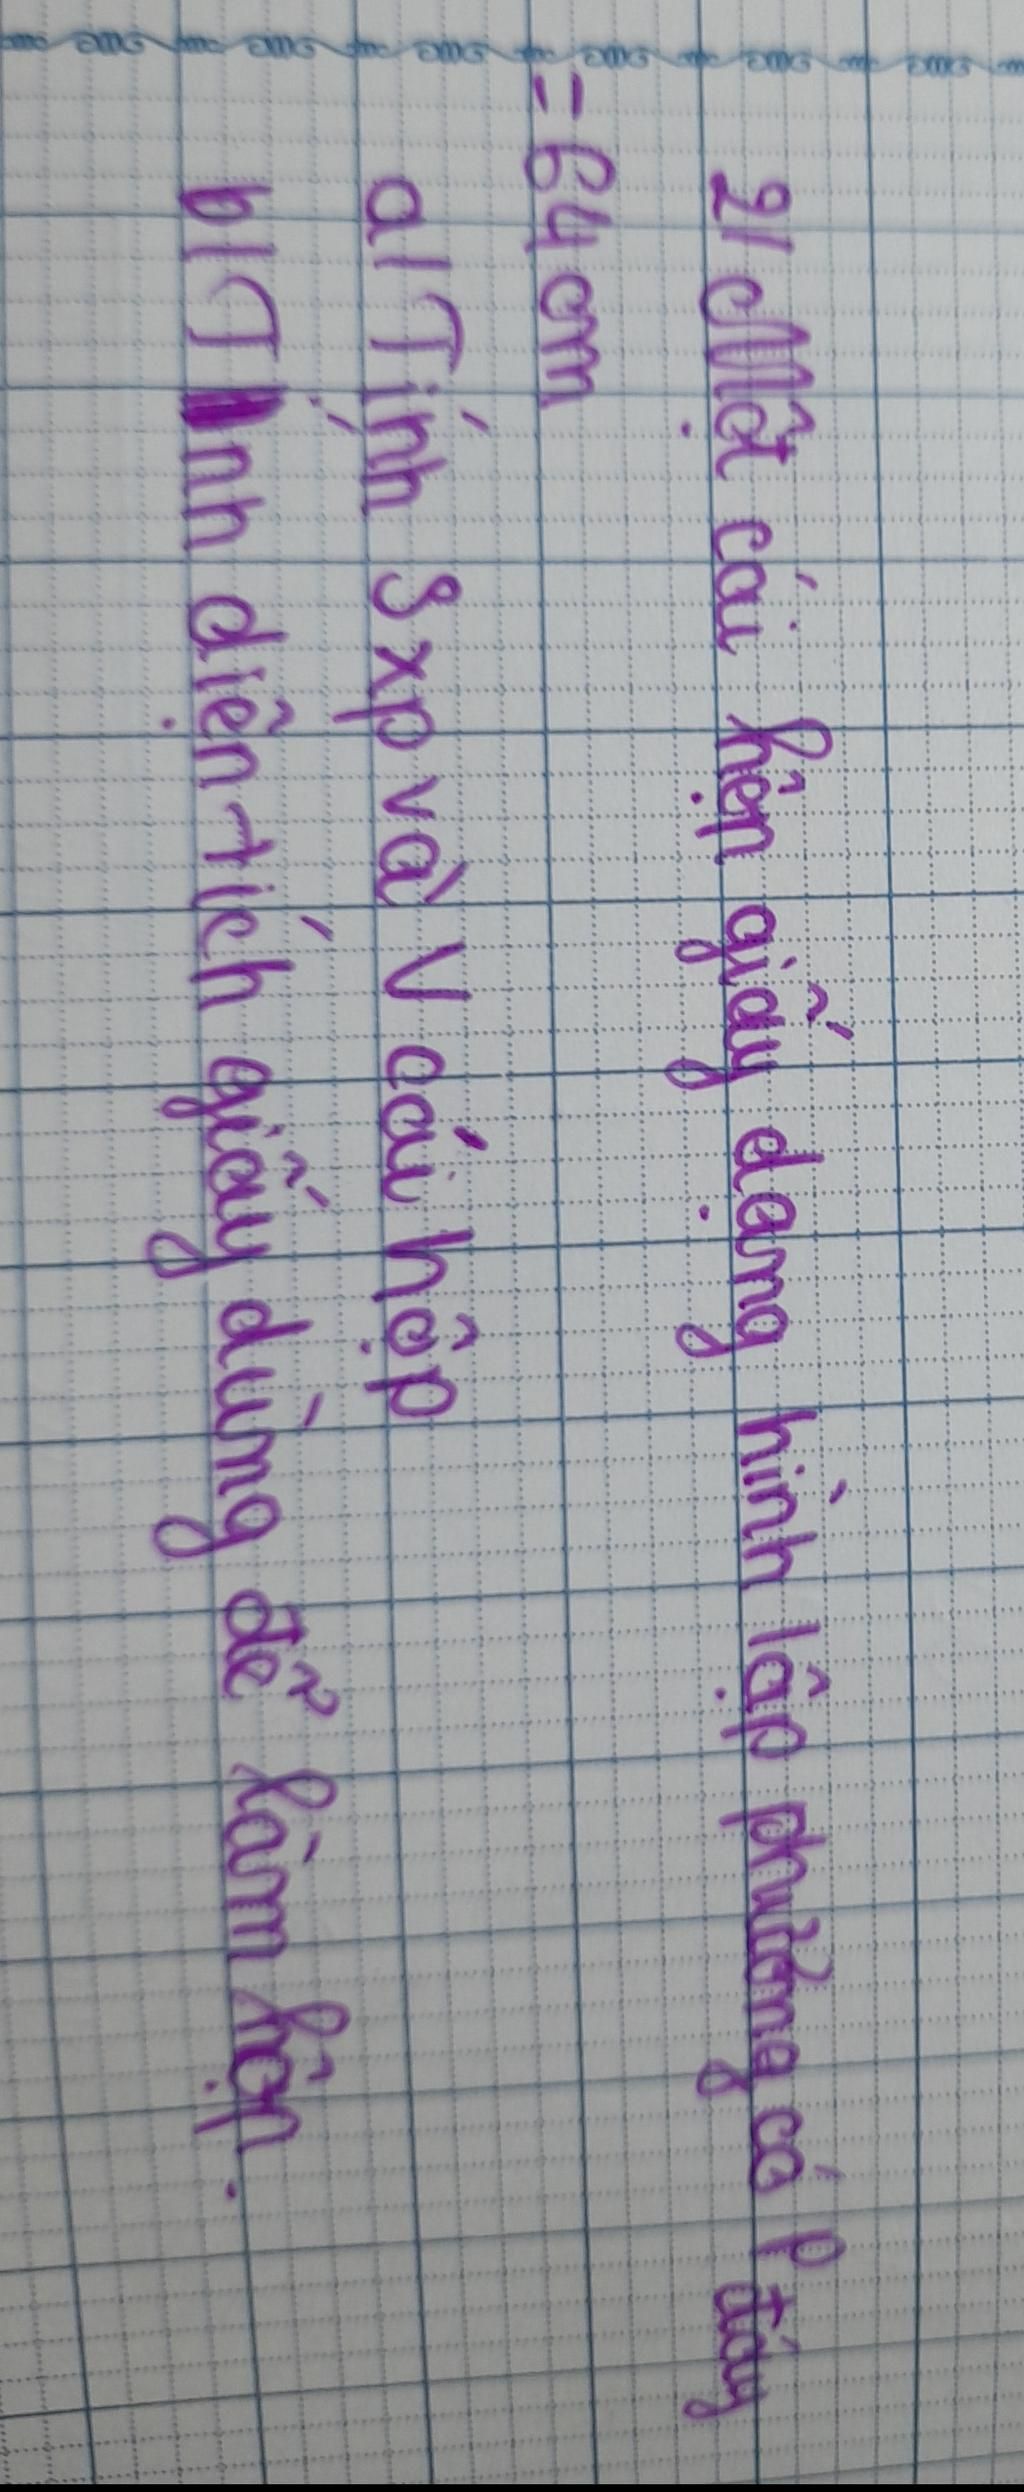 2/ Một cái hộp giấy dạng hình lập phương có P đáy
= 64 cm
a/ Tính Sxp và V cái hộp
b/ Tính diện tích giấy dùng để làm hộp.